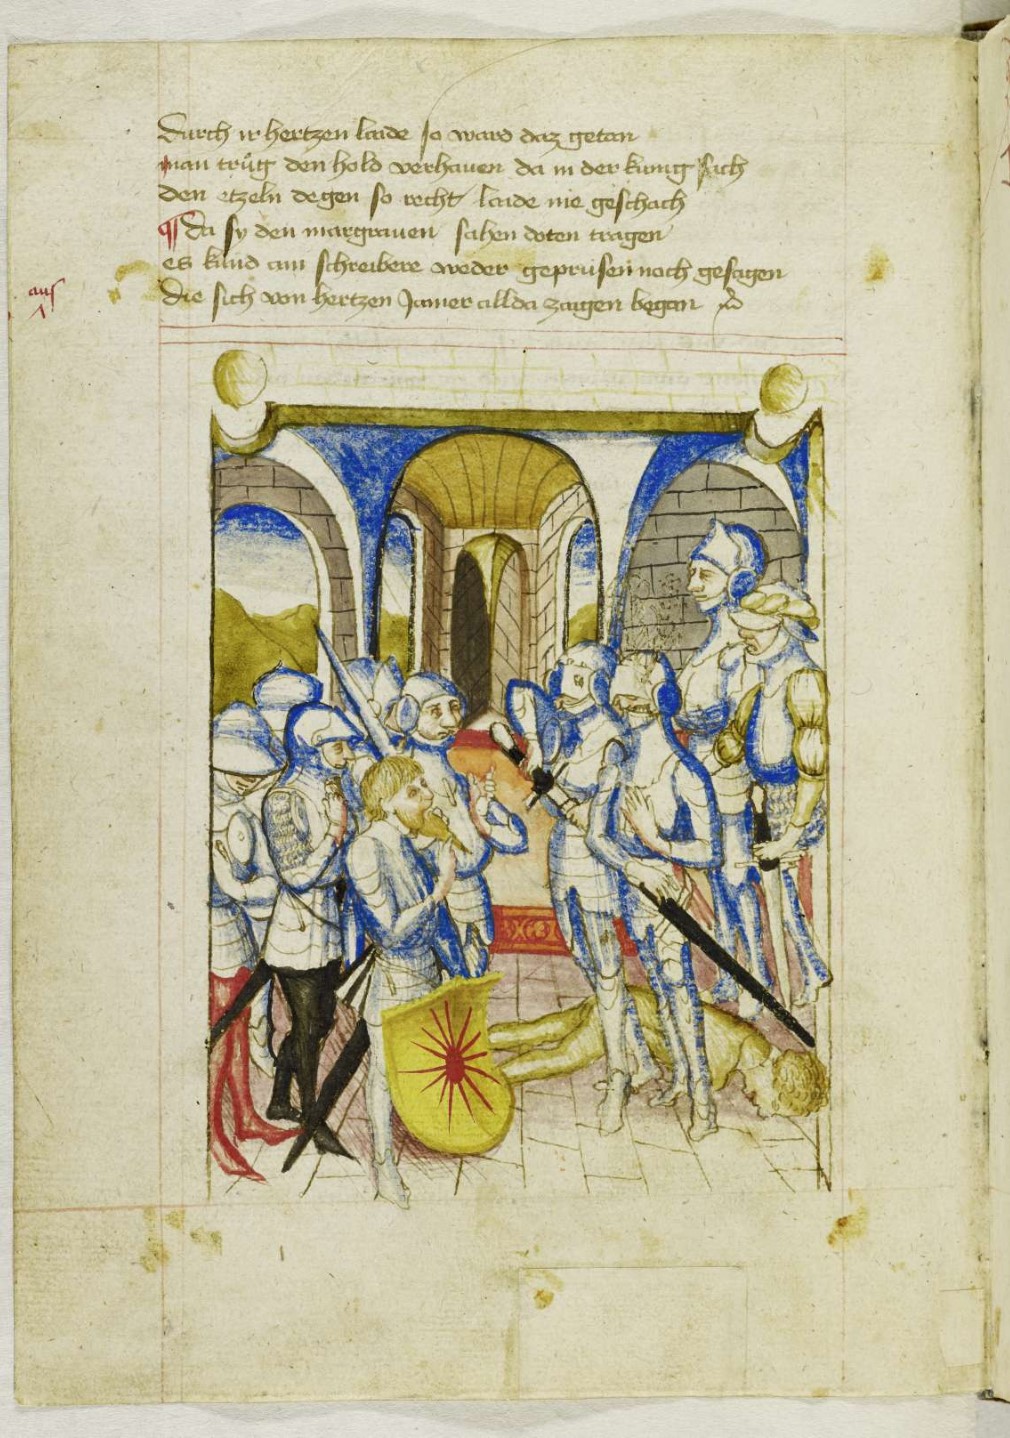 Durch ir hertzen laide so ward daz getan
man trůg den hold verhauen da in der kunig sich
den etzeln degen so recht laide nie geschach
¶ Da sy den margrauen sahen doten tragen
es kund ain schreibere weder geprüfen noch gesagen
aus
Die sich von hertzen Jamer allda zaigen began